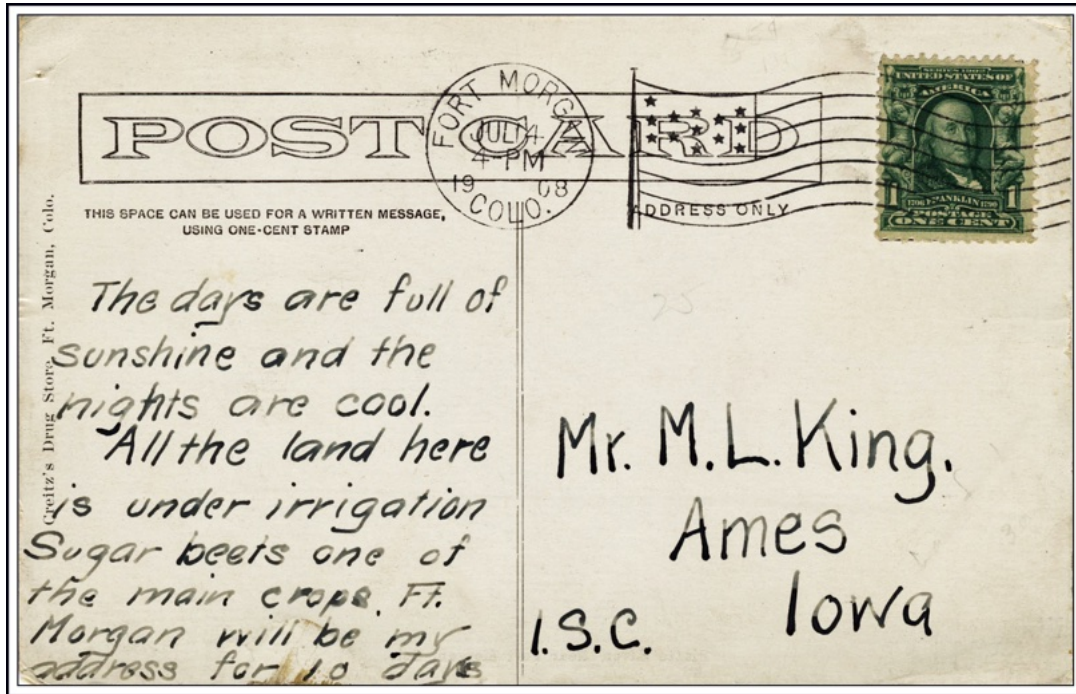 POST CARD
FORT MORG
JUL 14
4-PM
19 08
COLO.
SERIES 1902
UNITED STATES OF
AMERICA
1 1706 FRANKLIN 1790 1
POSTAGE
ONE CENT
THIS SPACE CAN BE USED FOR A WRITTEN MESSAGE,
USING ONE-CENT STAMP
ADDRESS ONLY
Creitz's Drug Store, Ft. Morgan, Colo.
The days are full of
sunshine and the
nights are cool.
All the land here
is under irrigation
Sugar beets one of
the main crops. Ft.
Morgan will be my
address for 10 days
25
Mr. M.L. King.
Ames
Iowa
I.S.C.